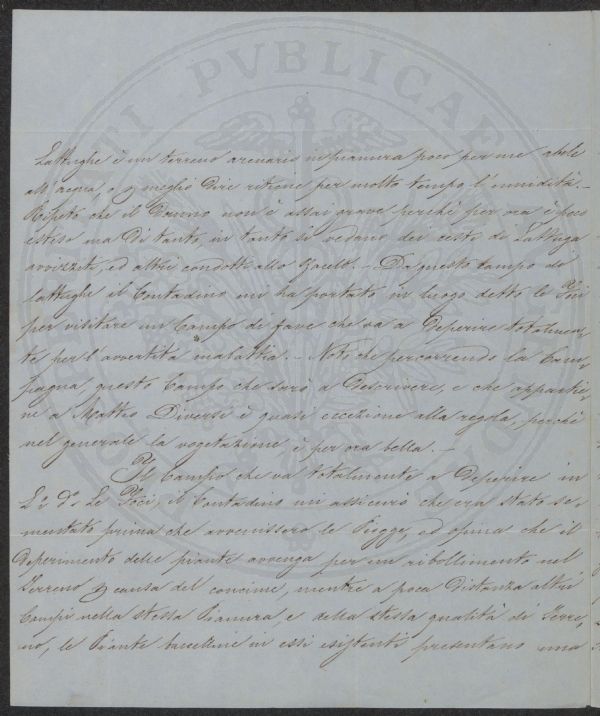 Lattughe è un terreno arenario in pianura poco per me abile
all'acqua, o p meglio dire ritiene per molto tempo l'umidità. –
Ripeto che il danno non è assai grave perchè per ora è poco
esteso ma di tanto in tanto si vedano dei cesti di Lattuga
avvizziti, ed altri condotti allo – Da questo Campo di
lattughe il Contadino mi ha portato in luogo detto le Poci
per visitare un Campo di fave che va a deperire totalmen-
te per l'avvertita malattia. – Noti che percorrendo la Cam-
pagna, questo Campo che sarò a descrivere, e che apparti-
ne a Matteo Diversi è quasi eccezione alla regola, perchè
nel generale la vegetazione è per ora bella. –
Il Campo che va totalmente a deperire in
L.º d.º Le Poci, il Contadino mi assicurò che era stato se-
mentato prima che avvenissero le Piogge, ed opina che il
deperimento delle piante avvenga per un ribollimento nel
Terreno p causa del concime, mentre a poca distanza altri
Campi nella stessa Pianura, e della stessa qualità di Terre-
no, le Piante in essi esistenti presentano una
PUBLICAE